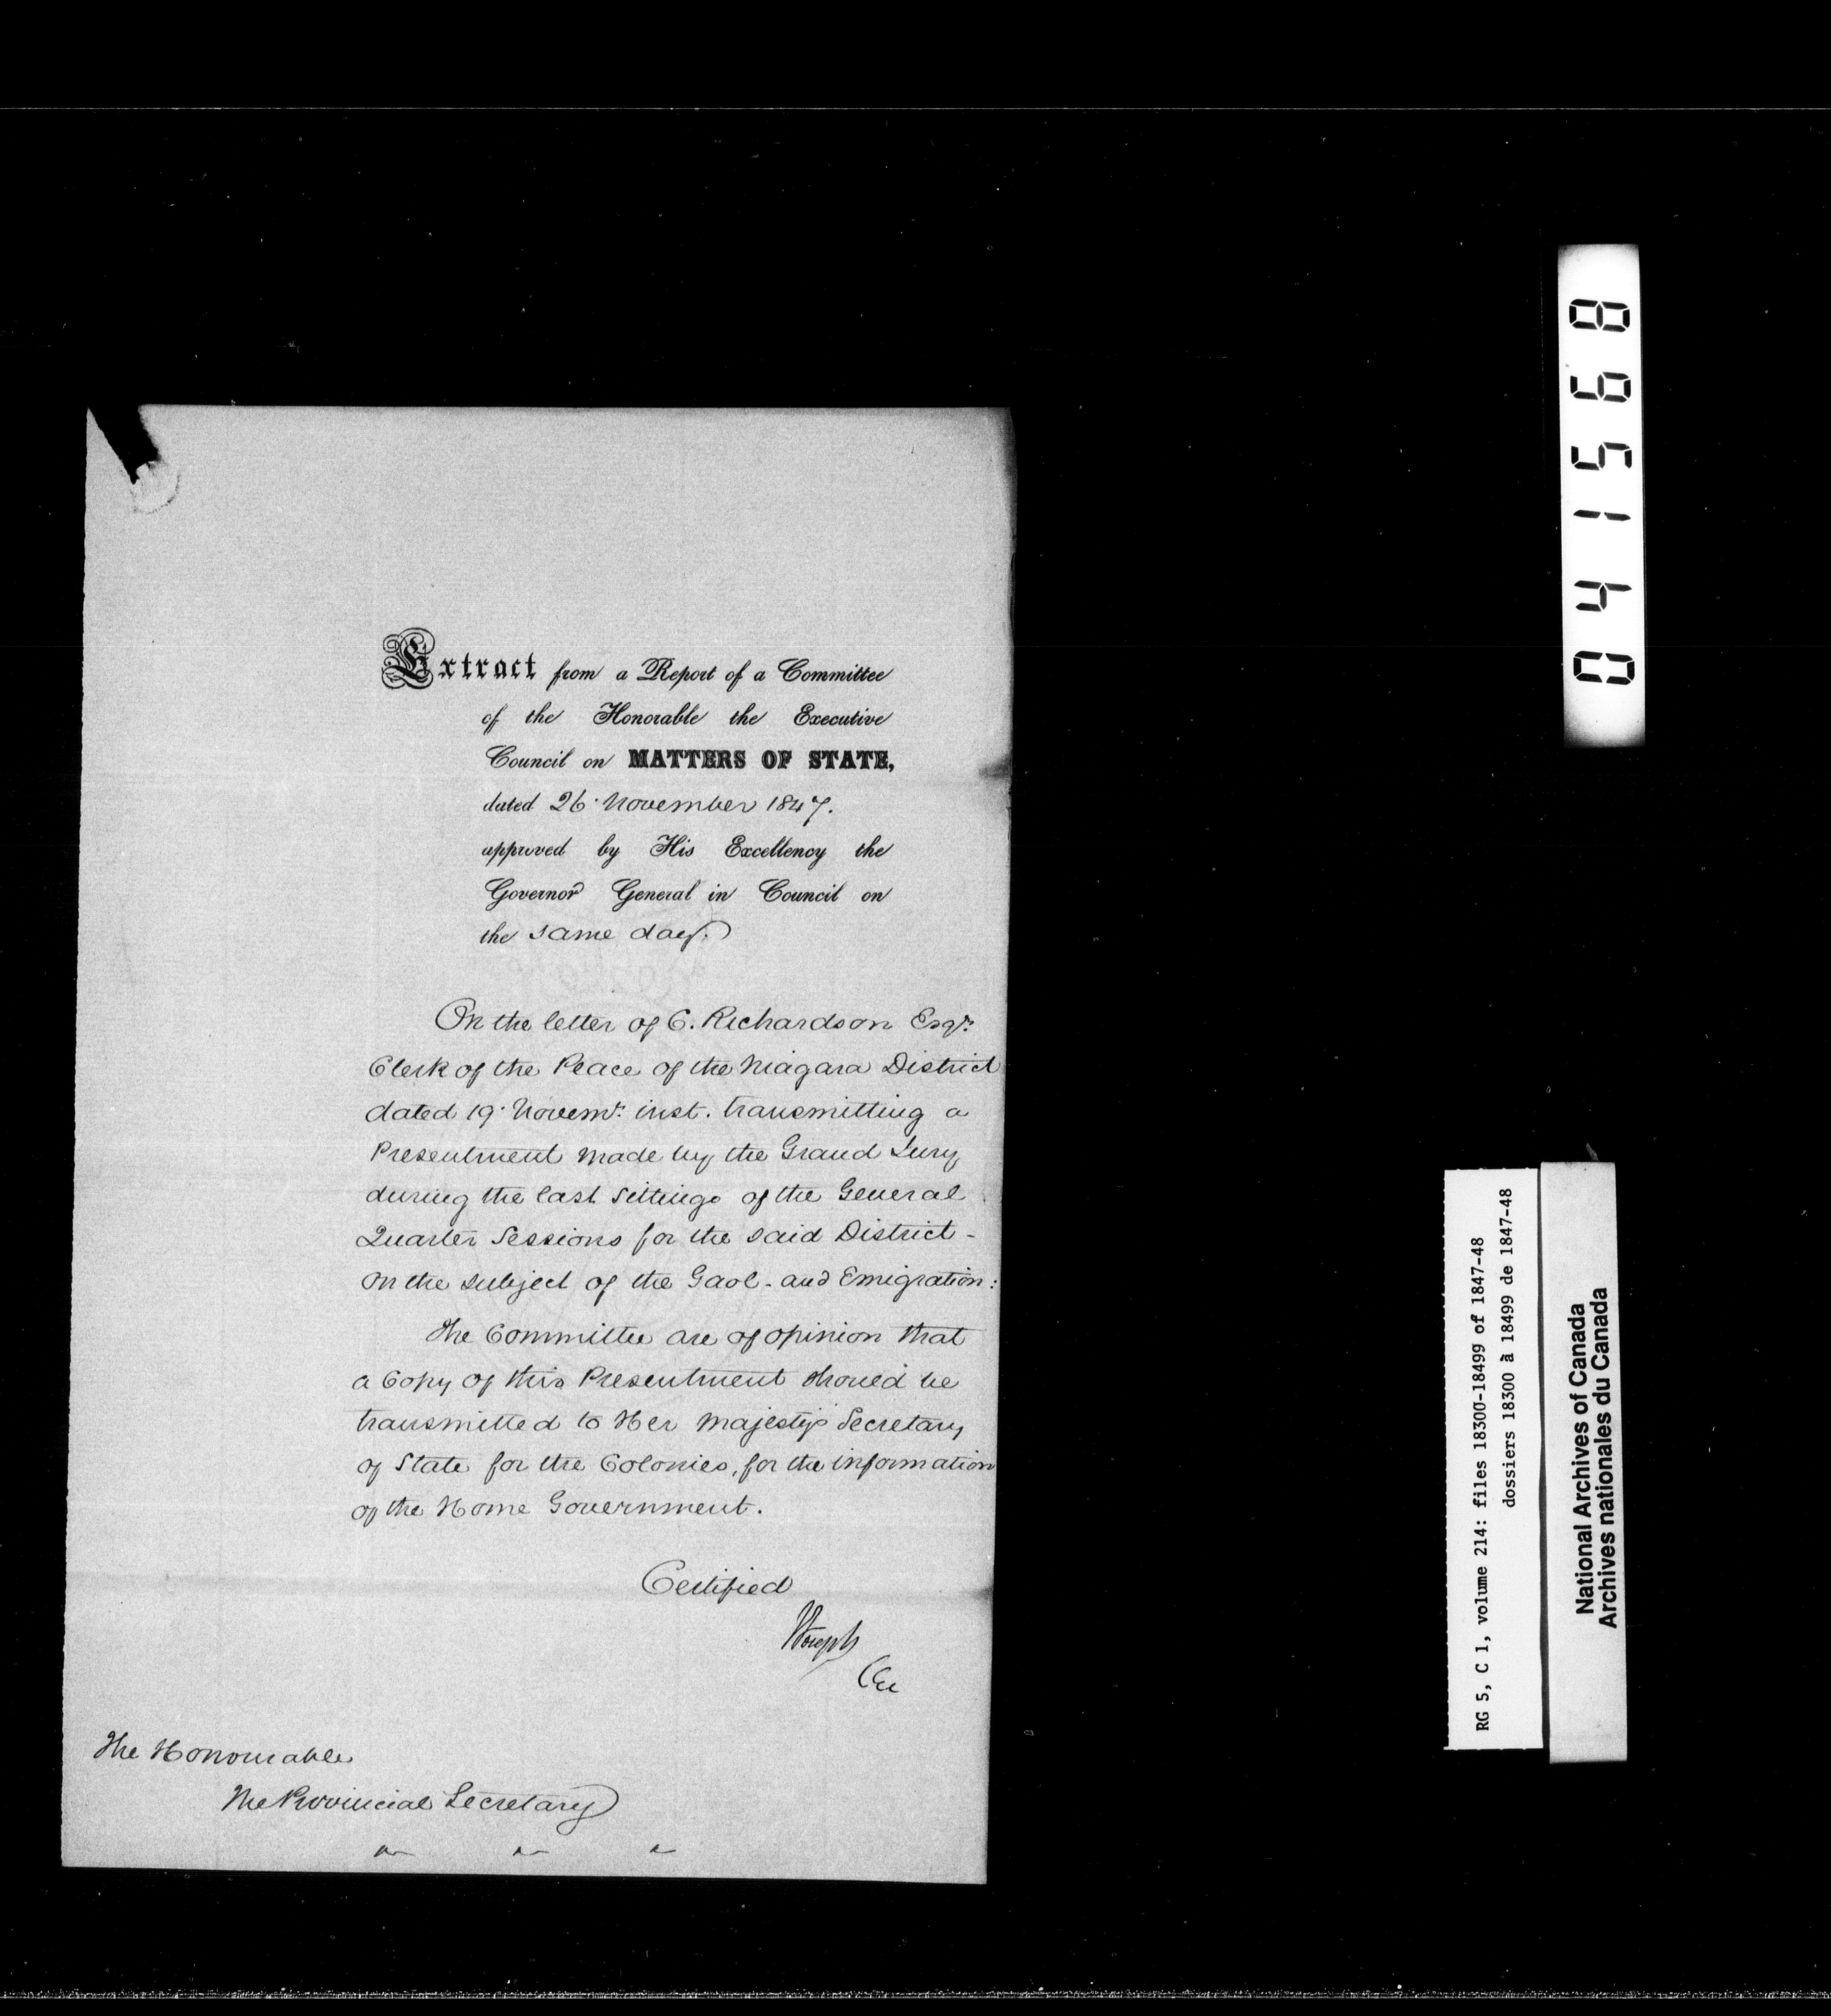 Extract from a Report of a Committee
of the Honorable the Executive
Council on MATTERS OF STATE,
dated 26 November 1847.
approved by His Excellency the
Governor General in Council on
the same day.
On the letter of C. Richardson Esqr.
Clerk of the Peace of the Niagara District
dated 19 Novemr. inst. transmitting a
Presentment made by the Grand Jury
during the last Sittings of the General
Quarter Sessions for the said District -
on the subject of the Gaol - and Emigration:
The Committee are of opinion that
a Copy of this Presentment should be
transmitted to Her Majesty's Secretary
of State for the Colonies, for the information
of the Home Government.
Certified
The Honourable
The Provincial Secretary
041568
RG 5, C 1, volume 214: files 18300-18499 of 1847-48
dossiers 18300 à 18499 de 1847-48
National Archives of Canada
Archives nationales du Canada